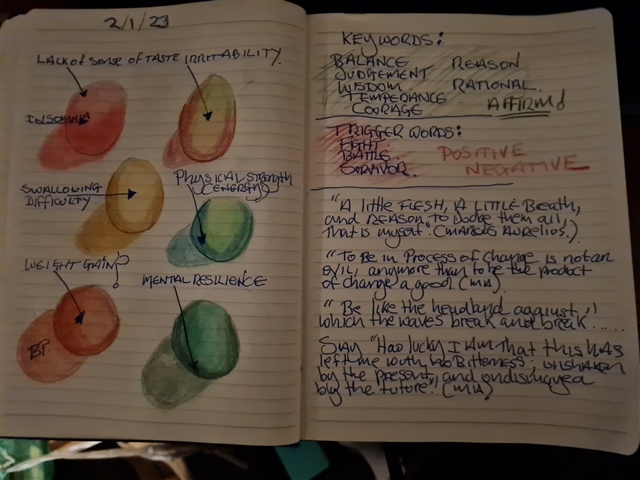 2/1/23
LACK OF SENSE OF TASTE
IRRITABILITY.
INSOMNIA
SWALLOWING
DIFFICULTY
PHYSICAL STRENGTH
(ENERGY)
WEIGHT GAIN?
MENTAL RESILIENCE
BP.
KEYWORDS:
BALANCE REASON
JUDGEMENT
WISDOM. RATIONAL.
TEMPERANCE
COURAGE AFFIRM!
TRIGGER WORDS:
FIGHT
BATTLE. POSITIVE
SURVIVOR. NEGATIVE
"A little FLESH, A LITTLE Breath,
and REASON TO Dodge them all,
that is myself." (MARCUS AURELIOS.)
"To Be in Process of change is not an
EVIL, anymore than to be the product
of change a good. (MA)
"Be like the headland against
which the waves break and break.....
Say "How lucky I AM That this HAS
left me with no Bitterness, unshaken
by the present, and undismayed
by the future." (MA)